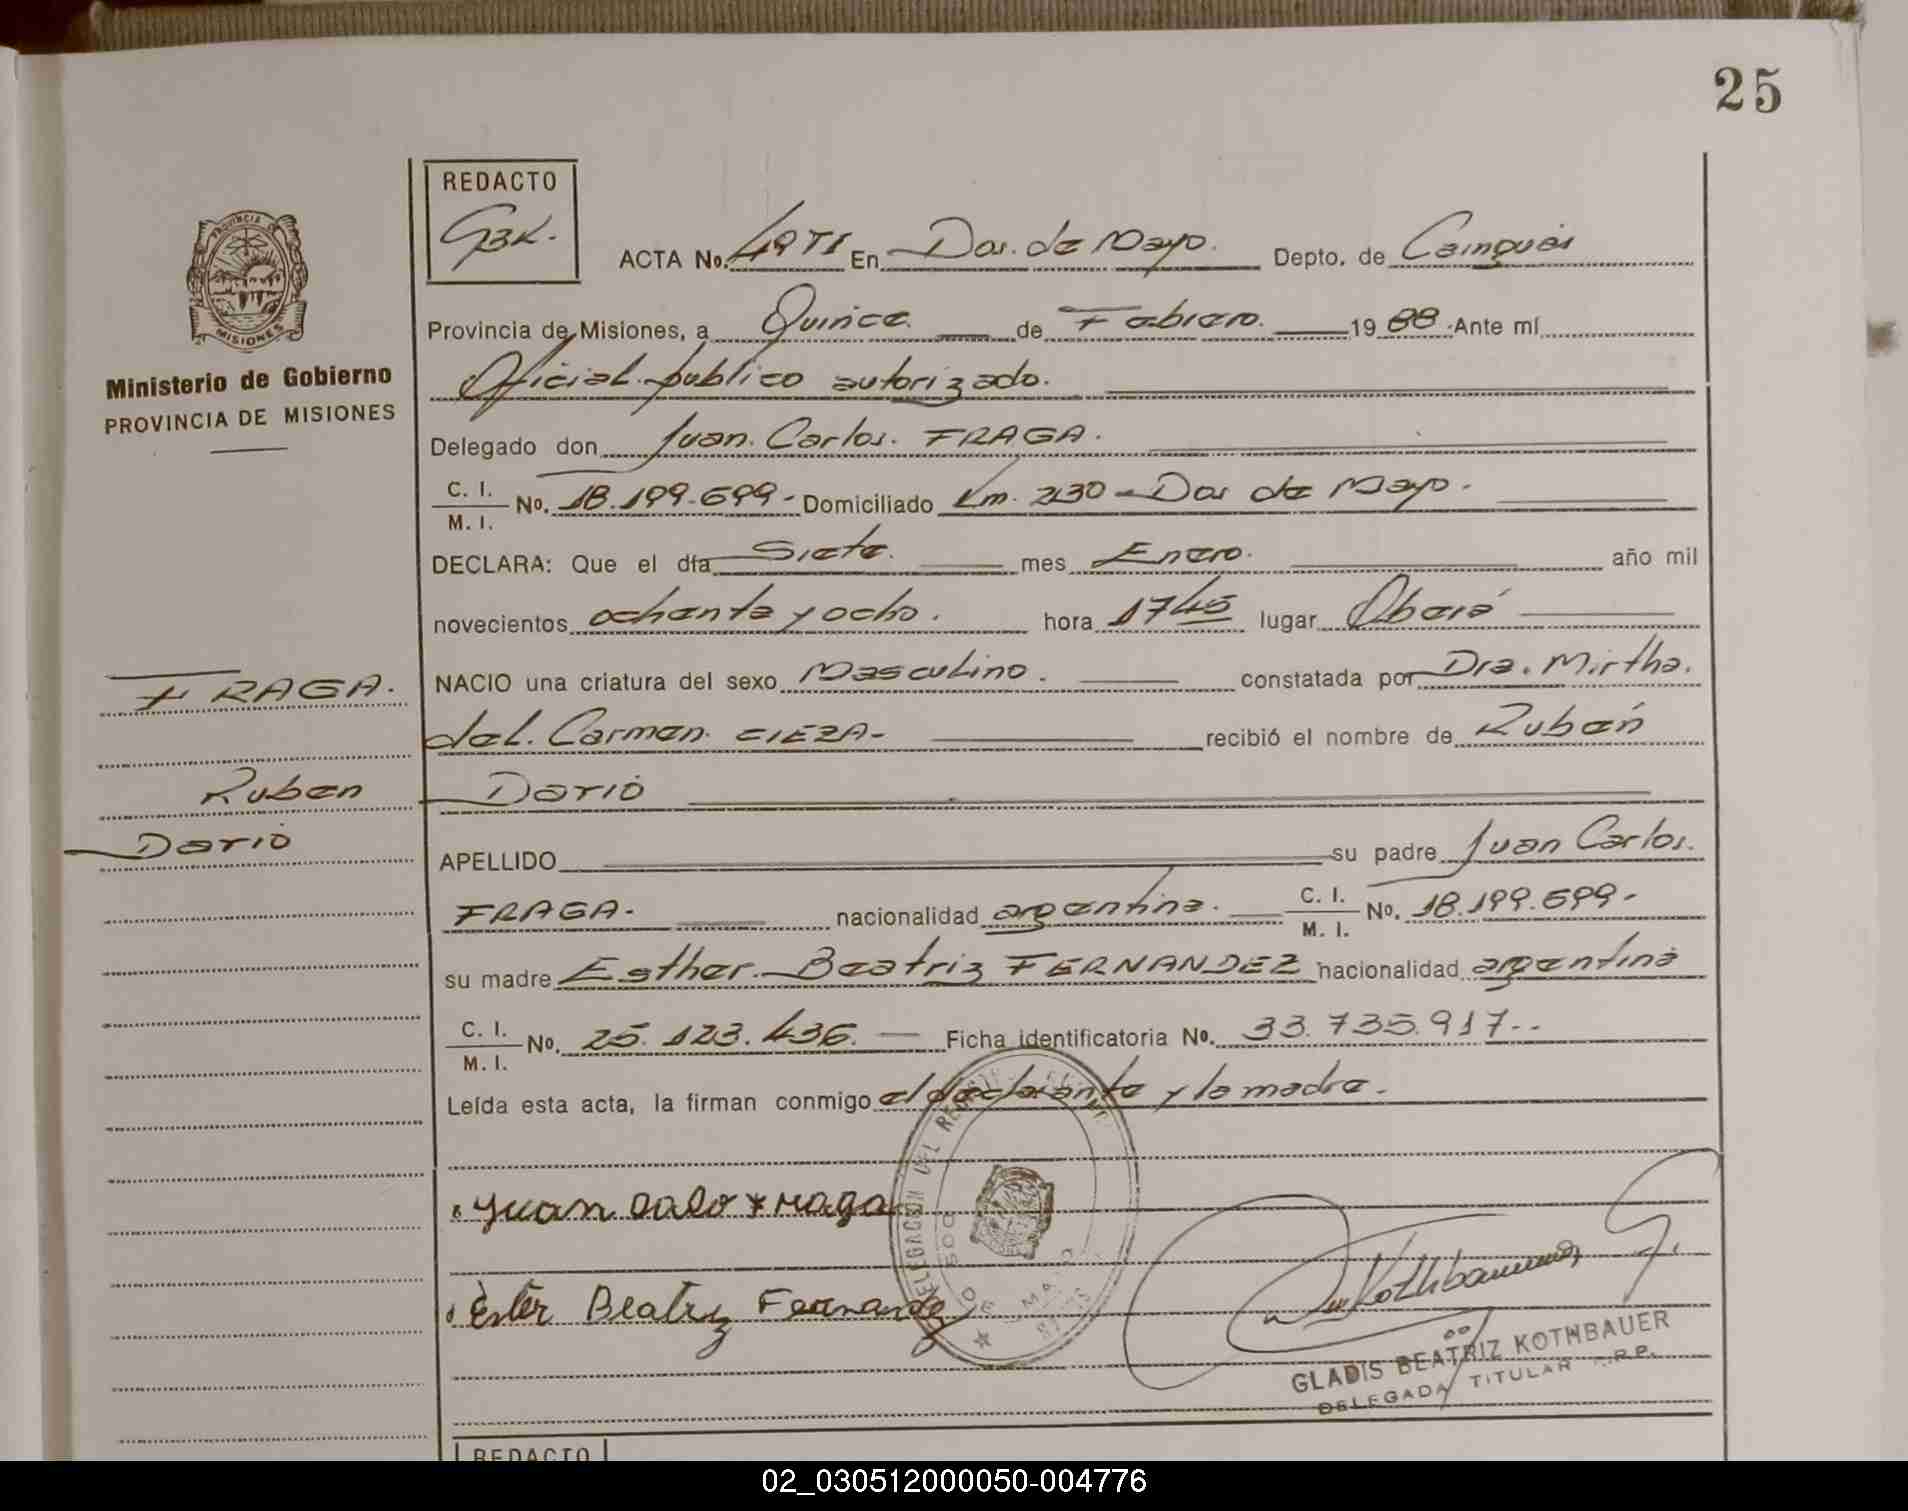 25
REDACTO
GBK.
ACTA No. 49TI En Dos de Mayo. Depto. de Cainguás
Provincia de Misiones, a Quince de Febrero. 19 88 Ante mí
Oficial público autorizado.
Delegado don Juan Carlos. FRAGA.
C. I.
M. I. No. 18.199.699- Domiciliado Km. 230 - Dos de Mayo.
DECLARA: Que el día Siete. mes Enero. año mil
novecientos ochenta y ocho. hora 1745 lugar Oberá
NACIO una criatura del sexo Masculino. constatada por Dra. Mirtha.
del. Carmen. CIEZA- recibió el nombre de Rubén
Darió
APELLIDO su padre Juan Carlos.
FRAGA. nacionalidad argentina. C. I.
M. I. No. 18.199.699-
su madre Esther. Beatriz FERNANDEZ nacionalidad argentina
C. I.
M. I. No. 25.123.436. Ficha identificatoria No. 33.735.917--
Leída esta acta, la firman conmigo el declarante y la madre.
Juan Calo Fraga
Ester Beatriz Fernandez
DELEGACION DEL REGISTRO
DOS DE MAYO
GLADIS BEATRIZ KOTHBAUER
DELEGADA TITULAR R.P.P.
PROVINCIA DE
MISIONES
Ministerio de Gobierno
PROVINCIA DE MISIONES
FRAGA.
Ruben
Darió
REDACTO
02_030512000050-004776